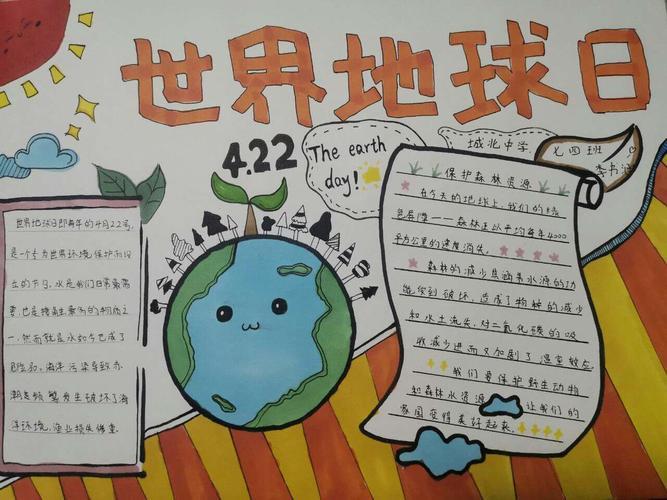 世界地球日
4.22
The earth
day!
城北中学
七四班
李书
世界地球日即每年的4月22号,
是一个为世界环境保护而设
立的节日。水是我们日常最需
要,也是生的物质之
一.然而就是水如今已成了
危险品,海洋污染导致赤
潮频繁发生破坏了海
洋环境,渔业损失惨重.
保护森林资源
在今天的地球上,我们的绿
色屏障——森林正以平均每年4000
平方公里的速度消失。
森林的减少使涵养水源的功
能受到破坏,造成了物种的减少
和水土流失,对二氧化碳的吸
收减少进而又加剧了温室效应.
我们要保护野生动物
和森林水资源 让我们的
家园变得美好起来.